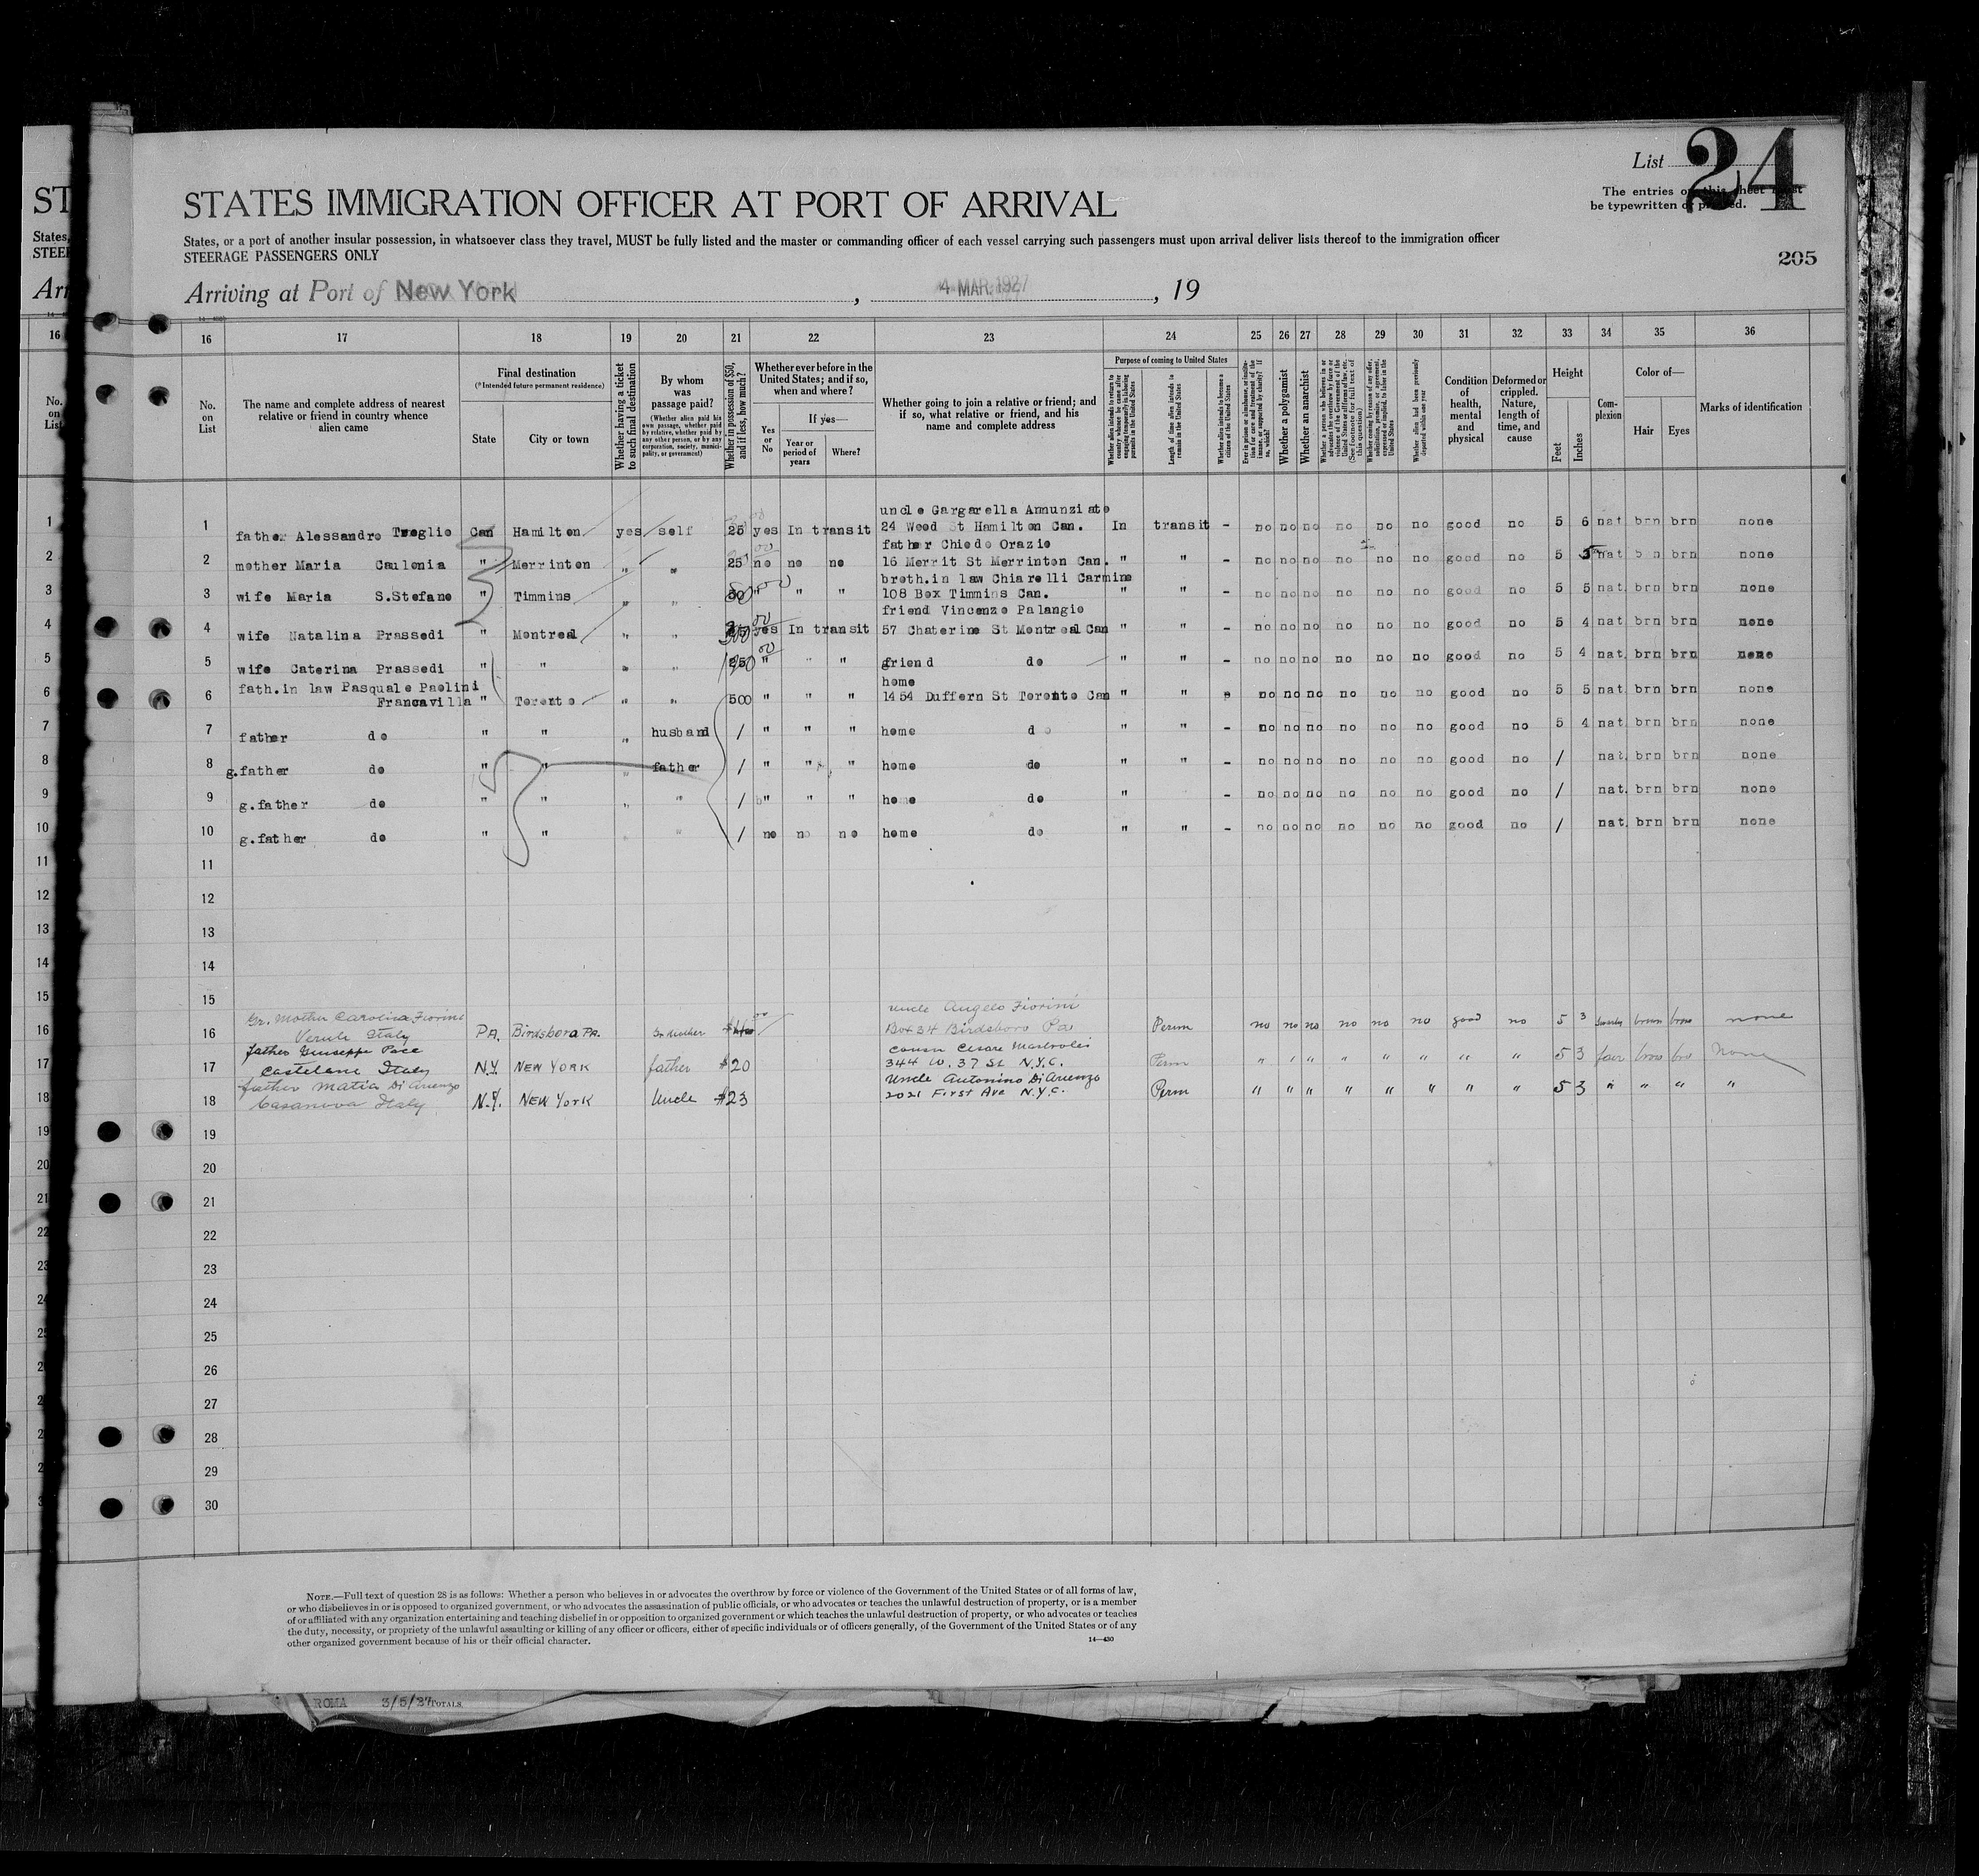 List 24
The entries on this sheet must
be typewritten or printed.
STATES IMMIGRATION OFFICER AT PORT OF ARRIVAL
States, or a port of another insular possession, in whatsoever class they travel, MUST be fully listed and the master or commanding officer of each vessel carrying such passengers must upon arrival deliver lists thereof to the immigration officer
STEERAGE PASSENGERS ONLY
205
Arriving at Port of New York, 4 MAR. 1927, 19
16 17 18 19 20 21 22 23 24 25 26 27 28 29 30 31 32 33 34 35 36
No. on List
The name and complete address of nearest relative or friend in country whence alien came
Final destination
(*Intended future permanent residence)
State
City or town
Whether having a ticket to such final destination
By whom was passage paid?
(Whether alien paid his own passage, whether paid by relative, whether paid by any other person, or by any corporation, society, municipality, or government)
Whether in possession of $50, and if less, how much?
Whether ever before in the United States; and if so, when and where?
Yes or No
If yes—
Year or period of years
Where?
Whether going to join a relative or friend; and if so, what relative or friend, and his name and complete address
Purpose of coming to United States
Whether alien intends to return to country whence he came after engaging temporarily in laboring pursuits in the United States
Length of time alien intends to remain in the United States
Whether alien intends to become a citizen of the United States
Ever in prison or almshouse, or institution for care and treatment of the insane, or supported by charity? If so, which?
Whether a polygamist
Whether an anarchist
Whether a person who believes in or advocates the overthrow by force or violence of the Government of the United States or all forms of law, etc. (See footnote for full text of this question)
Whether coming by reason of any offer, solicitation, promise, or agreement, expressed or implied, to labor in the United States
Whether alien had been previously deported within one year
Condition of health, mental and physical
Deformed or crippled. Nature, length of time, and cause
Height
Feet
Inches
Complexion
Color of—
Hair
Eyes
Marks of identification
uncle Gargarella Annunziato
1 father Alessandro Treglio Can Hamilton yes self 25 yes In transit 24 Wood St Hamilton Can. In transit - no no no no no no good no 5 6 nat brn brn none
father Chiodo Orazio
2 mother Maria Caulonia " Merrinton " " 25 no no no 16 Merrit St Merrinton Can. " " - no no no no no no good no 5 5 nat b n brn none
broth.in law Chiarelli Carmine
3 wife Maria S.Stefano " Timmins " " " " " 108 Box Timmins Can. " " - no no no no no no good no 5 5 nat. brn brn none
friend Vincenzo Palangio
4 wife Natalina Prassedi " Montreal " " yes In transit 57 Chaterine St Montreal Can " " - no no no no no no good no 5 4 nat. brn brn none
5 wife Caterina Prassedi " " " " " " " griend do " " - no no no no no no good no 5 4 nat. brn brn none
fath.in law Pasquale Paolini home
6 Francavilla " Toronto " " 500 " " " 1454 Duffern St Toronto Can " " no no no no no no good no 5 5 nat. brn brn none
7 father do " " " husband / " " " home d o " " - no no no no no no good no 5 4 nat. brn brn none
8 g.father do " " " father / " " " home do " " - no no no no no no good no / nat. brn brn none
9 g.father do " " " " / " " " home do " - no no no no no no good no / nat. brn brn none
10 g.father do " " " " / no no no home do " " - no no no no no no good no / nat. brn brn none
11
12
13
14
15
Gr. Mother Carolina Fiorini uncle Angelo Fiorini
16 Veruli Italy PA. Birdsboro PA. Gr Mother Box 34 Birdsboro Pa Perm no no no no no no good no 5 3 brown brow none
father Giuseppe Pace cousin Cesare
17 Castelani Italy N.Y. NEW YORK father $20 344 W. 37 St N.Y.C. Perm " " " " " " " " 5 3 fair bro bro None
father Matia Di Arienzo Uncle Antonino Di Arienzo
18 Casanova Italy N.Y. NEW YORK Uncle $23 2021 First Ave N.Y.C. Perm " " " " " " " " 5 3 " " " "
19
20
21
22
23
24
25
26
27
28
29
30
NOTE.—Full text of question 28 is as follows: Whether a person who believes in or advocates the overthrow by force or violence of the Government of the United States or of all forms of law,
or who disbelieves in or is opposed to organized government, or who advocates the assassination of public officials, or who advocates or teaches the unlawful destruction of property, or is a member
of or affiliated with any organization entertaining and teaching disbelief in or opposition to organized government or which teaches the unlawful destruction of property, or who advocates or teaches
the duty, necessity, or propriety of the unlawful assaulting or killing of any officer or officers, either of specific individuals or of officers generally, of the Government of the United States or of any
other organized government because of his or their official character.
14—430
ROMA 3/5/27 TOTALS